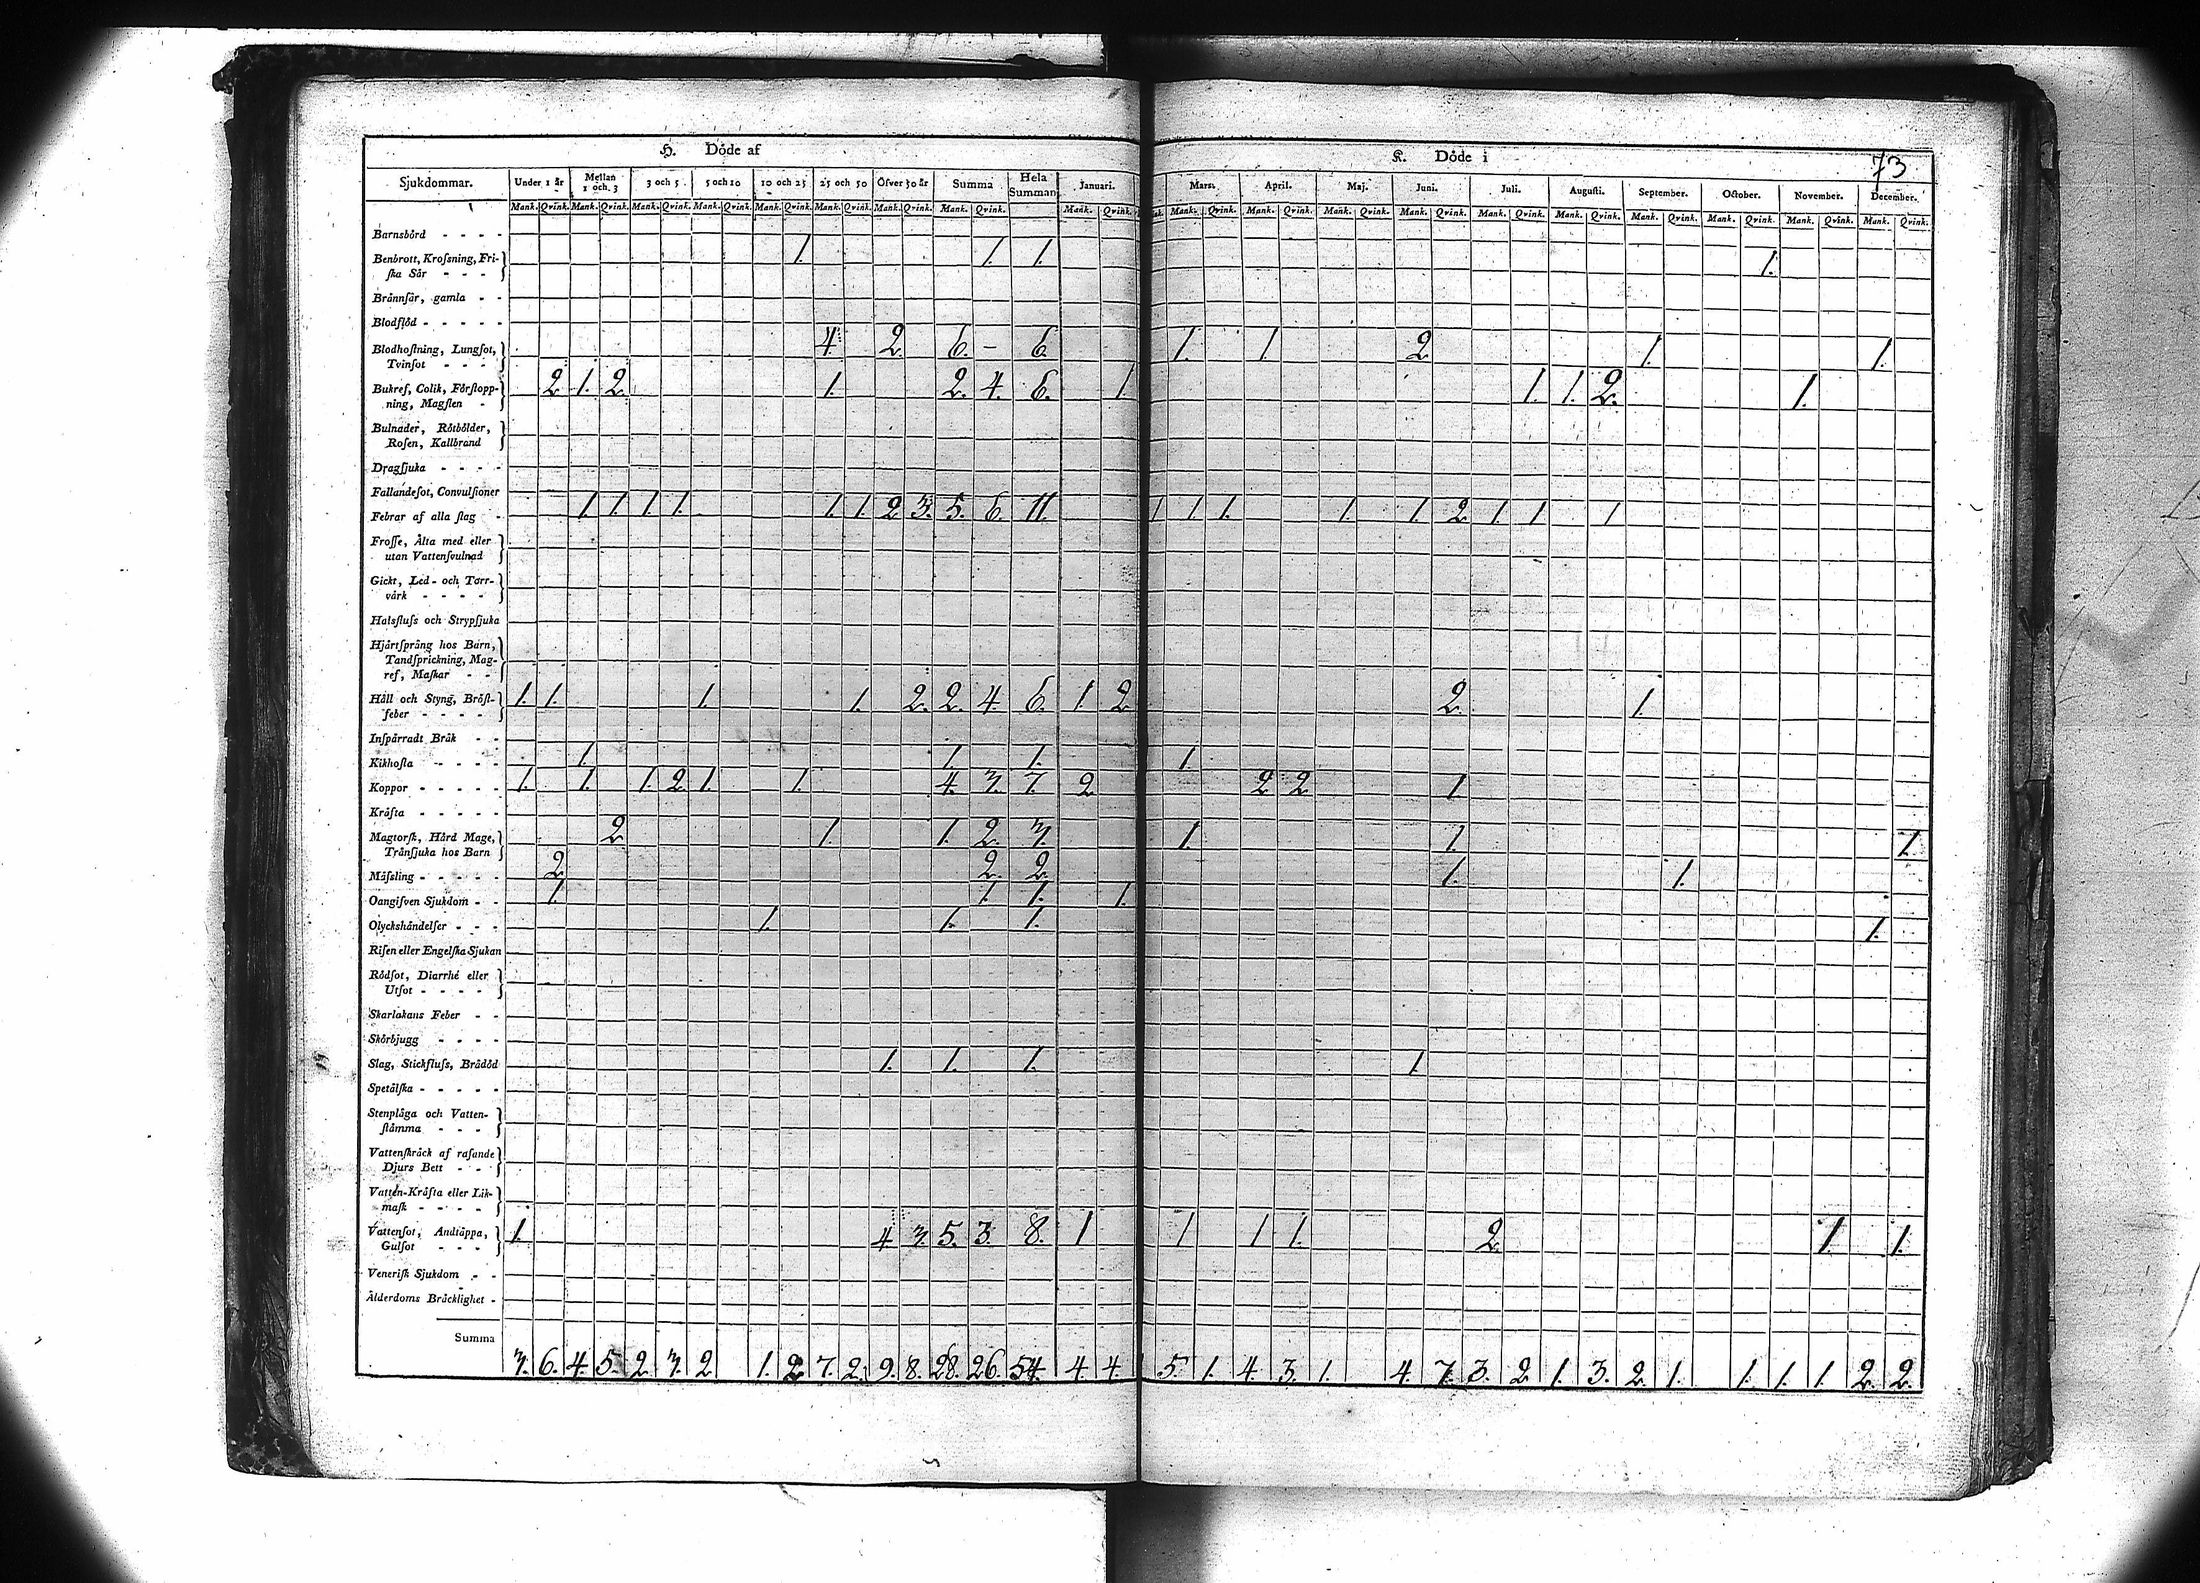 73
H. Döde af
K. Döde i
Sjukdommar. Under 1 år Mellan 1 och 3 3 och 5 5 och 10 10 och 25 25 och 50 Öfver 50 år Summa Hela Summan Januari. Mars. April. Maj. Juni. Juli. Augusti. September. October. November. December.
Mank. Qvink. Mank. Qvink. Mank. Qvink. Mank. Qvink. Mank. Qvink. Mank. Qvink. Mank. Qvink. Mank. Qvink. Mank. Qvink. Mank. Qvink. Mank. Qvink. Mank. Qvink. Mank. Qvink. Mank. Qvink. Mank. Qvink. Mank. Qvink. Mank. Qvink. Mank. Qvink. Mank. Qvink.
Barnsbörd - - - -
Benbrott, Krosning, Fri- 1. 1. 1. 1.
ska Sår - - -
Brännsår, gamla - -
Blodflöd - - - - -
Blodhostning, Lungsot, 4. 2 6. – 6. 1. 1. 2 1. 1.
Tvinsot - - -
Bukref, Colik, Förstopp- 2 1. 2 1. 2. 4. 6. 1. 1. 1. 2. 1.
ning, Magsten -
Bulnader, Rötbölder,
Rosen, Kallbrand
Dragsjuka - - - -
Fallandesot, Convulsioner
Febrar af alla slag - 1. 1. 1. 1. 1. 1. 2 3. 5. 6. 11. 1 1. 1. 1. 1. 2 1. 1. 1.
Frosse, Älta med eller
utan Vattensvulnad
Gickt, Led- och Torr-
värk - - - -
Halsfluss och Strypsjuka
Hjärtsprång hos Barn,
Tandsprickning, Mag-
ref, Maskar - -
Håll och Styng, Bröst- 1. 1. 1. 1. 2. 2. 4. 6. 1. 2 2. 1.
feber - - - -
Inspärradt Bråk - -
Kikhosta - - - - 1. 1. 1. 1.
Koppor - - - - - 1. 1. 1. 2 1. 1. 4. 3. 7. 2 2 2 1.
Kräfta - - - - -
Magtorsk, Hård Mage, 2 1. 1. 2. 3. 1. 1. 1.
Trånsjuka hos Barn
Mässling - - - - - 2 2. 2. 1. 1.
Oangifven Sjukdom - - 1. 1. 1. 1.
Olyckshändelser - - - 1. 1. 1. 1.
Risen eller Engelska Sjukan
Rödsot, Diarrhé eller
Utsot - - - -
Skarlakans Feber - -
Skörbjugg - - - -
Slag, Stickfluss, Brådöd 1. 1. 1. 1.
Spetälska - - - - -
Stenplåga och Vatten-
stämma - - -
Vattenskräck af rasande
Djurs Bett - - -
Vatten-Kräfta eller Lik-
mask - - - -
Vattensot, Andtäppa, 1. 4. 3. 5. 3. 8. 1 1 1 1. 2. 1. 1.
Gulsot - - -
Venerisk Sjukdom - -
Ålderdoms Bräcklighet -
Summa
3. 6. 4. 5. 2. 3. 2 1. 2 7. 2. 9. 8. 28. 26. 54. 4. 4. 5. 1. 4. 3. 1. 4. 7. 3. 2 1. 3. 2 1. 1. 1. 1. 2. 2.